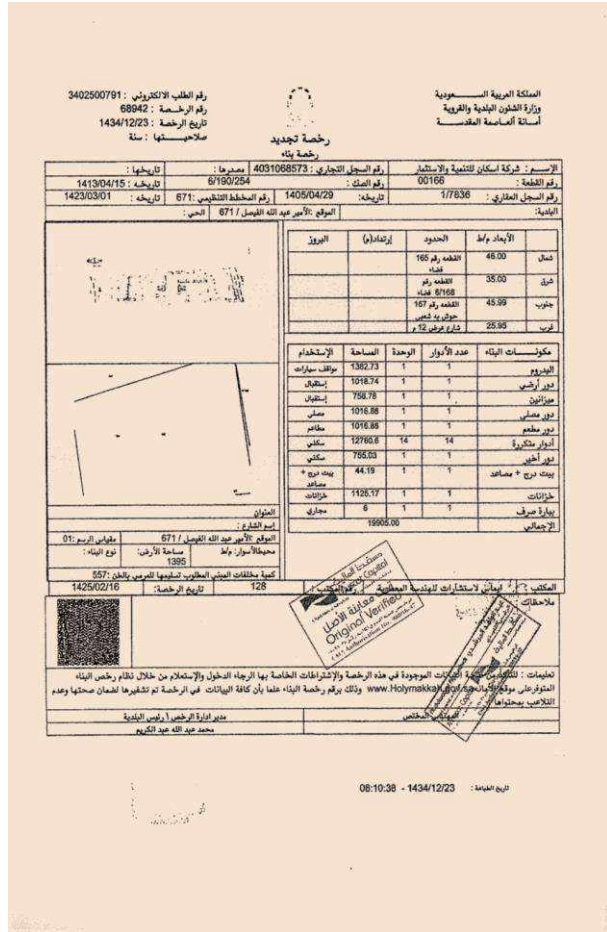 المملكة العربية الســـــعودية
وزارة الشئون البلدية والقروية
أمــانة العـاصمة المقدســـة
رقم الطلب الالكتروني : 3402500791
رقم الرخــصة : 68942
تاريخ الرخصة : 1434/12/23
صلاحيـــتها : سنة
رخصة تجديد
رخصة بناء
الإســـم : شركة اسكان للتنمية والاستثمار رقم السجل التجاري : 4031068573 مصدرها : تاريخها :
رقم القطعة : 00166 رقم الصك : 6/190/254 تاريخـه : 1413/04/15
رقم السجل العقاري : 1/7836 تاريخه: 1405/04/29 رقم المخطط التنظيمي :671 تاريخه : 1423/03/01
البلدية: الموقع :الأمير عبد الله الفيصل / 671 الحي :
الأبعاد م/ط الحدود إرتداد(م) البروز
شمال 46.00 القطعه رقم 165 فضاء
شرق 35.00 القطعه رقم 6/168 فضاء
جنوب 45.99 القطعه رقم 167 حوش به شعبي
غرب 25.95 شارع عرض 12 م
مكونـــات البناء عدد الأدوار الوحدة المساحة الإستخدام
البدروم 1 1 1382.73 مواقف سيارات
دور أرضي 1 1 1018.74 إستقبال
ميزانين 1 1 758.78 إستقبال
دور مصلى 1 1 1016.86 مصلى
دور مطعم 1 1 1016.86 مطاعم
أدوار متكررة 14 14 12760.6 سكني
دور أخير 1 1 755.03 سكني
بيت درج + مصاعد 1 1 44.19 بيت درج + مصاعد
خزانات 1 1 1126.17 خزانات
بيارة صرف 1 1 6 مجاري
الإجمالي 19905.00
العنوان
إسم الشارع :
الموقع :الأمير عبد الله الفيصل / 671 مقياس الرسم :01
محيطالأسوار: م/ط مساحة الأرض: 1395 نوع البناء :
كمية مخلفات المبنى المطلوب تسليمها للمرمي بالطن :557
المكتب : لاستشارات للهندسة المعمارية 128 تاريخ الرخصة: 1425/02/16
ملاحظات
معاينة الأصل
Original Verified
تعليمات : الموجودة في هذه الرخصة والإشتراطات الخاصة بها الرجاء الدخول والإستعلام من خلال نظام رخص البناء
المتوفرعلى موقع www.Holymakkah.gov.sa وذلك برقم رخصة البناء علما بأن كافة البيانات في الرخصة تم تشفيرها لضمان صحتها وعدم
التلاعب بمحتواها
المختص مدير ادارة الرخص \ رئيس البلدية
محمد عبد الله عبد الكريم
تاريخ الطباعة : 1434/12/23 - 08:10:38